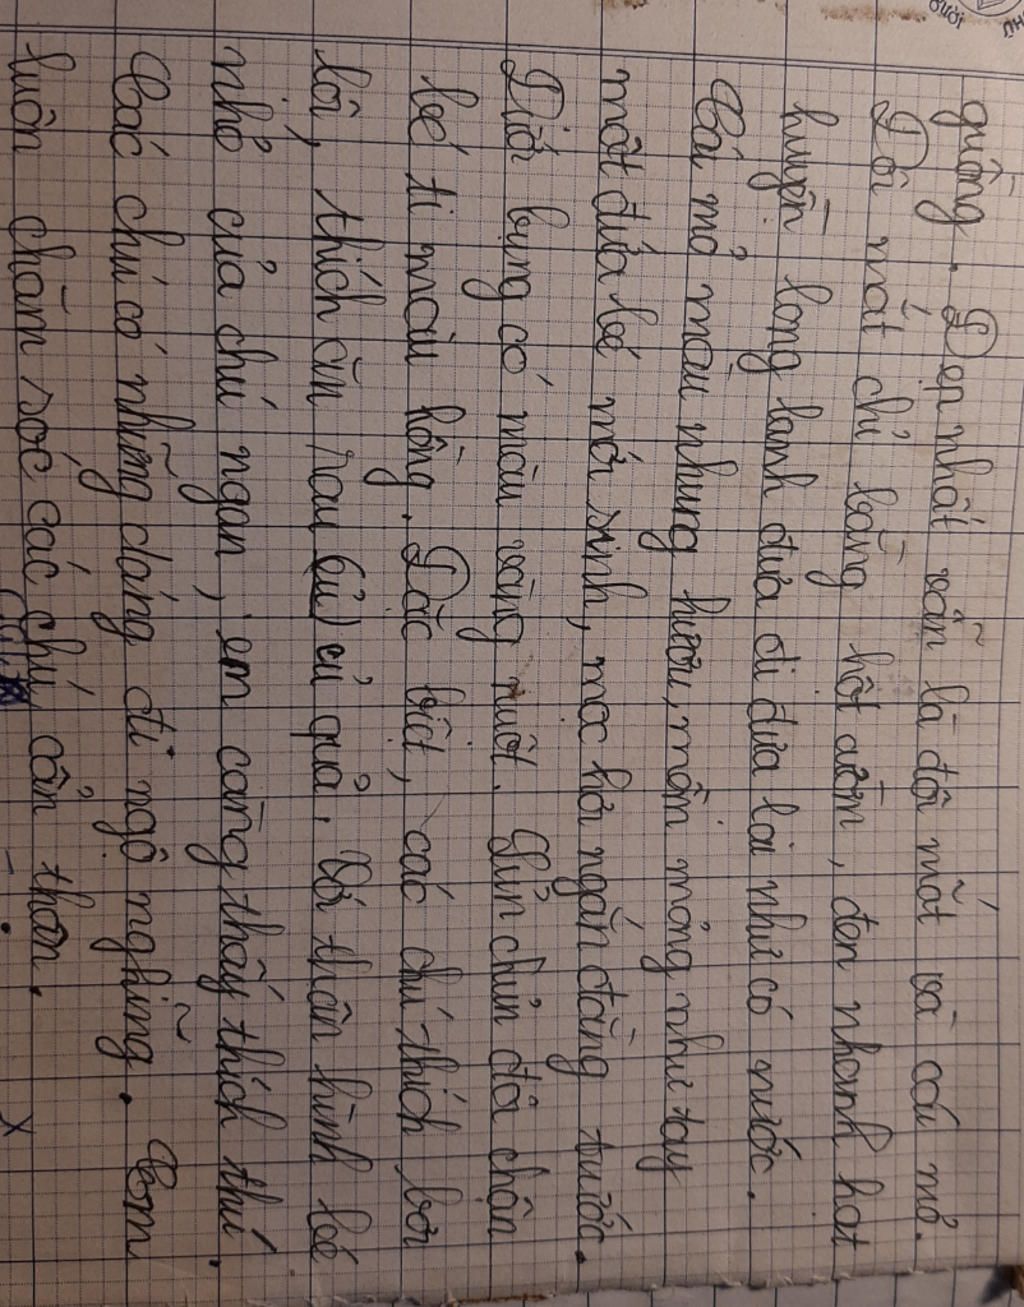 giường. Đẹp nhất vẫn là đôi mắt và cái mỏ.
Đôi mắt chỉ bằng hột cườm, đen nhanh hạt
huyền long lanh đưa đi đưa lại như có nước.
Cái mỏ màu nhung hươu, mềm mỏng như tay
một đứa bé mới sinh, mọc hơi ngắn đằng trước.
Dưới bụng có màu vàng nuột. Lủn chủn đôi chân
bé ti màu hồng. Đặc biệt, các chú thích bơi
lội, thích ăn rau củ quả. Với thân hình bé
nhỏ của chú ngan, em càng thấy thích thú.
Các chú có những dáng đi ngộ nghĩng. Em
luôn chăm sóc các chú cẩn thận.